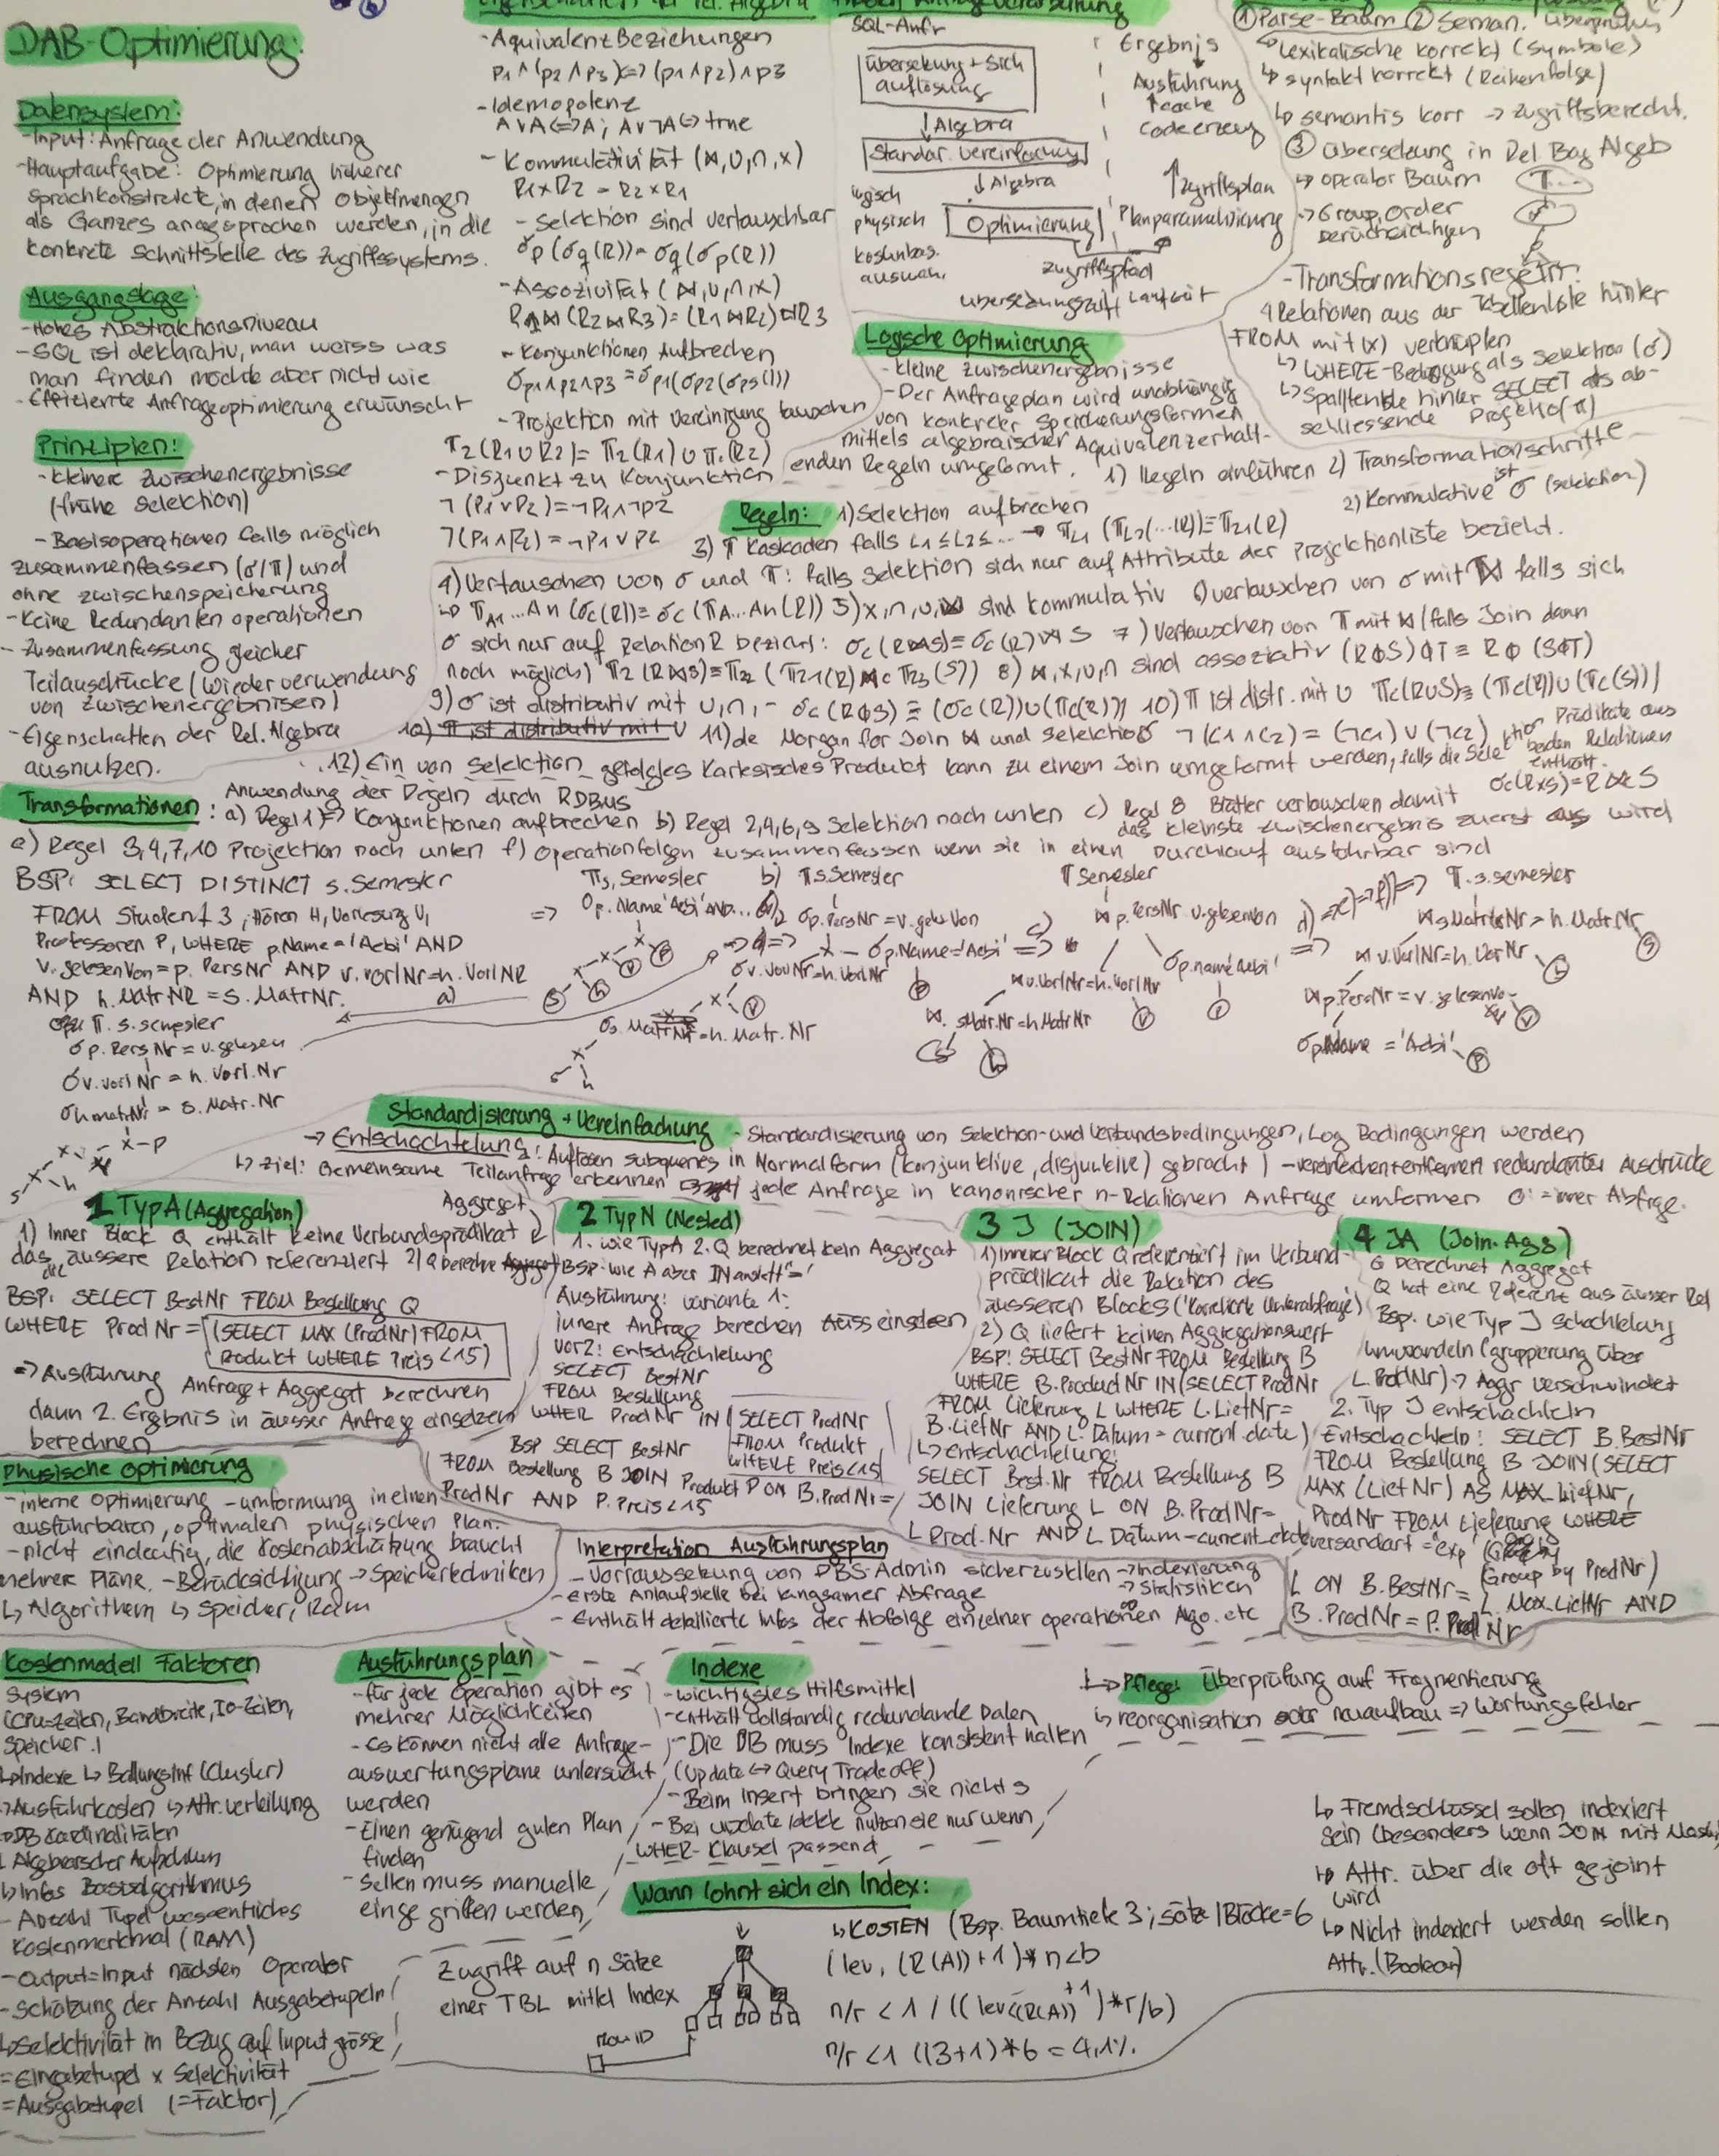 DAB-Optimierung:
Datensystem:
-Input: Anfrage der Anwendung
-Hauptaufgabe: Optimierung höherer
Sprachkonstrukte, in denen Objektmengen
als Ganzes angesprochen werden, in die
konkrete Schnittstelle des Zugriffssystems.
Ausgangslage:
-Hohes Abstraktionsniveau
-SQL ist deklarativ, man weiss was
man finden möchte aber nicht wie
-Effiziente Anfrageoptimierung erwünscht
Prinzipien:
-kleinere Zwischenergebnisse
(frühe Selektion)
-Basisoperationen falls möglich
zusammenfassen (σ/π) und
ohne zwischenspeicherung
-Keine Redundanten operationen
-Zusammenfassung gleicher
Teilausdrücke (Wiederverwendung
von Zwischenergebnisen)
-Eigenschaften der Rel. Algebra
ausnutzen.
-Äquivalenz Beziehungen
p1 ∧ (p2 ∧ p3) <=> (p1 ∧ p2) ∧ p3
-Idempotenz
A ∨ A <=> A; A ∨ ¬A <=> true
- Kommutativität (⋈, ∪, ∩, x)
R1 x R2 = R2 x R1
- Selektion sind vertauschbar
σp (σq (R)) = σq (σp (R))
-Assozivität (⋈, ∪, ∩, x)
R1 ⋈ (R2 ⋈ R3) = (R1 ⋈ R2) ⋈ R3
- Konjunktionen Aufbrechen
σp1∧p2∧p3 = σp1(σp2(σp3()))
- Projektion mit Vereinigung tauschen
π2 (R1 ∪ R2) = π2 (R1) ∪ π2 (R2)
- Disjunkt zu Konjunktion
¬ (P1 ∨ P2) = ¬P1 ∧ ¬P2
¬ (P1 ∧ P2) = ¬P1 ∨ P2
SQL-Anfr
Übersetzung + Sich
auflösung
↓ Algebra
Standar. Vereinfachung
↓ Algebra
logisch
physisch
kostenbas.
auswahl
Optimierung
Ergebnis
Ausführung
↑ cache
Codeerzeug
↑ Zugriffsplan
Planparametrisierung
Zugriffspfad
Übersetzungszeit Laufzeit
① Parse-Baum ② Seman. Überprüfung
↳ Lexikalische korrekt (Symbole)
↳ syntakt korrekt (Reihenfolge)
↳ semantis korr → Zugriffsberecht.
③ Übersetzung in Rel Bag Algeb
↳ operator Baum
↳ Group, Order
berücksichtigen
-Transformationsregeln:
Relationen aus der Tabellenliste hinter
FROM mit (x) verknüpfen
↳ WHERE-Bedingung als Selektion (σ)
↳ Spaltenliste hinter SELECT als ab-
schliessende Projektio (π)
Logische Optimierung
- kleine Zwischenergebnisse
-Der Anfrageplan wird unabhängig
von konkreter Speicherungsformen
mittels algebraischer Äquivalenzerhalt-
enden Regeln umgeformt. 1) Regeln einführen 2) Transformationschritte
Regeln: 1) Selektion aufbrechen 2) Kommulative ist σ (selektion)
3) π Kaskaden falls L1 ≤ L2 ≤ ... → πL1 (πL2(...(R)) ≡ πL1 (R)
4) Vertauschen von σ und π: falls Selektion sich nur auf Attribute der Projektionliste bezieht.
↳ πA1...An (σc(R)) ≡ σc (πA...An (R)) 5) x, ∩, ∪, ⋈ sind kommulativ 6) vertauschen von σ mit ⋈ falls sich
σ sich nur auf Relation R bezieht: σc (R⋈S) ≡ σc (R) ⋈ S 7) Vertauschen von π mit ⋈ (falls Join dann
noch möglich) π2 (R⋈S) ≡ π2 (π21(R) ⋈c π23 (S)) 8) ⋈, x, ∪, ∩ sind assoziativ (RΦS)ΦT ≡ RΦ (SΦT)
9) σ ist distributiv mit ∪, ∩, - σc (RΦS) ≡ (σc (R)) ∪ (πc(R)) 10) π ist distr. mit ∪ πc(R∪S) ≡ (πc(R)) ∪ (πc(S))
10) π ist distributiv mit ∪ 11) de Morgan for Join ⋈ und selektion ¬ (c1 ∧ c2) = (¬c1) ∨ (¬c2)
12) Ein von selektion gefolgtes Kartesisches Produkt kann zu einem Join umgeformt werden, falls die Selektion Prädikate aus beiden Relationen enthält.
σc(RxS) = R⋈cS
Transformationen: Anwendung der Regeln durch RDBMS
a) Regel 1) => Konjunktionen aufbrechen b) Regel 2,4,6,9 Selektion nach unten c) Regel 8 Blätter vertauschen damit
das kleinste Zwischenergebnis zuerst aus wird
e) Regel 3,4,7,10 Projektion nach unten f) Operationfolgen zusammenfassen wenn sie in einen Durchlauf ausführbar sind
BSP: SELECT DISTINCT s.Semester
FROM Student S, Hören H, Vorlesung V,
Professoren P, WHERE p.Name = 'Aebi' AND
V.gelesenVon = p.PersNr AND v.VorlNr = h.VorlNR
AND h.MatrNR = S.MatrNr.
a)
π s.semester
σ p.PersNr = v.gelesen
σ v.vorlNr = h.Vorl.Nr
σ h.matrNr = s.Matr.Nr
x-p
s h
=>
π s, Semester
σ p.Name 'Aebi' AND...
S H V P
b) π s.Semester
σ p.PersNr = v.gelesVon
x - σ p.Name = 'Aebi'
σ v.VorlNr = h.VorlNr
P
V
σ s.MatrNr = h.Matr.Nr
s h
c) =>
π Semester
⋈ p.PersNr v.gelesenVon
⋈ v.VorlNr = h.VorlNr
σ p.name 'Aebi'
⋈ s.Matr.Nr = h.MatrNr
d) => e) => f) =>
π s.semester
⋈ s.MatrNr = h.Matr.Nr
⋈ v.VorlNr = h.VorNr
⋈ p.PersNr = v.gelesenVo-
σ p.Name = 'Aebi'
Standardisierung + Vereinfachung - Standardisierung von Selektion- und Verbundsbedingungen, Log Bedingungen werden
→ Entschachtelung: Auflösen subqueries in Normalform (konjunktive, disjunktive) gebracht) - vereinfachen + entfernen redundanter Ausdrücke
↳ Ziel: Gemeinsame Teilanfrage erkennen jede Anfrage in kanonischer n-Relationen Anfrage umformen Q = inner Abfrge.
1 TypA (Aggregation)
Aggregat
1) Inner Block Q enthält keine Verbundsprädikat
das die äussere Relation referenziert 2) Q berechne
BSP: SELECT BestNr FROM Bestellung Q
WHERE ProdNr = (SELECT MAX (ProdNr) FROM
Produkt WHERE Preis < 15)
=> Ausführung Anfrage + Aggregat berechnen
dann 2. Ergbnis in äusser Anfrage einsetzen
berechnen
2 TypN (Nested)
1. Wie TypA 2. Q berechnet kein Aggregat
BSP: wie A aber IN anstatt "="
Ausführung: Variante 1:
innere Anfrage berechen äuss einsetzen
Var 2: Entschachtelung
SELECT BestNr
FROM Bestellung
WHER ProdNr IN (SELECT ProdNr
FROM Produkt
WHERE Preis < 15)
BSP SELECT BestNr
FROM Bestellung B JOIN Produkt P ON B.ProdNr =
ProdNr AND P.Preis < 15
3 J (JOIN)
1) Innerer Block Q referenziert im Verbund-
prädikat die Relation des
äusseren Blocks ('Korrelierte Unterabfrage')
2) Q liefert keinen Aggregationswert
BSP: SELECT BestNr FROM Bestellung B
WHERE B.ProductNr IN (SELECT ProdNr
FROM Lieferung L WHERE L.LiefNr =
B.LiefNr AND L.Datum = current.date)
↳ entschachtelung:
SELECT Best.Nr FROM Bestellung B
JOIN Lieferung L ON B.ProdNr =
L.Prod.Nr AND L Datum - current.date
4 JA (Join. Agg)
Q berechnet Aggregat
Q hat eine Referenz aus äusser Rel
Bsp. wie Typ J Schachtelung
umwandeln (gruppierung über
L.ProdNr) → Aggr verschwindet
2. Typ J entschachteln
Entschachteln: SELECT B.BestNr
FROM Bestellung B JOIN (SELECT
MAX (LiefNr) AS MAX_LiefNr,
ProdNr FROM Lieferung WHERE
versandart = 'exp'
(Group by ProdNr)
L ON B.BestNr = L.Max.LiefNr AND
B.ProdNr = P.ProdNr
Physische Optimierung
- interne Optimierung - umformung in einen
ausführbaren, optimalen physischen Plan.
-nicht eindeutig, die Kostenabschätzung braucht
mehrer Pläne. - Berücksichtigung → Speichertechniken
↳ Algorithem ↳ Speicher, Ram
Interpretation Ausführungsplan
- Vorraussetzung von DBS-Admin sicherzustellen → Indexierung
→ Statistiken
- erste Anlaufstelle bei langsamer Abfrage
- Enthält detaillierte Infos der Abfolge einzelner operationen Algo. etc
Kostenmodell Faktoren
System
(CPU-Zeiten, Bandbreite, IO-Zeiten,
Speicher.)
↳ Indexe ↳ Ballungsinf (Cluster)
↳ Ausführkosten ↳ Attr.verteilung
↳ DB Kardinalitäten
↳ Infos Basisalgorithmus
- Anzahl Tupel wesentliches
Kostenmerkmal (RAM)
- Output = Input nächsten Operator
- Schätzung der Anzahl Ausgabetupeln
↳ Selektivität in Bezug auf Inputgrösse
= Eingabetupel x Selektivität
= Ausgabetupel (= Faktor)
Ausführungsplan
- für jede Operation gibt es
mehrer Möglichkeiten
- Es können nicht alle Anfrage-
auswertungspläne untersucht
werden
- Einen genügend guten Plan
finden
- Selten muss manuelle
eingegriffen werden
Indexe
-wichtigstes Hilfsmittel
-enthält vollständig redundande Daten
-Die DB muss Indexe konsistent halten
(Update ↔ Query Tradeoff)
- Beim Insert bringen sie nichts
- Bei update/delete nützen sie nur wenn
WHER-Klausel passend
↳ Pflege: Überprüfung auf Fragmentierung
↳ reorganisation oder neuaufbau => Wartungsfehler
Wann lohnt sich ein Index:
Zugriff auf n Sätze
einer TBL mittel Index
Row ID
↳ KOSTEN (Bsp. Baumtiefe 3; Sätze/Blöcke = 6
(lev, (R(A)) + 1) * n < b
n/r < 1 / ((lev(R(A)) + 1) * r/b)
n/r < 1 ((3+1) * 6 = 4,1%
↳ Fremdschlüssel sollen indexiert
sein (besonders wenn JOIN mit
↳ Attr. über die oft gejoint
wird
↳ Nicht indexiert werden sollen
Attr. (Boolean)